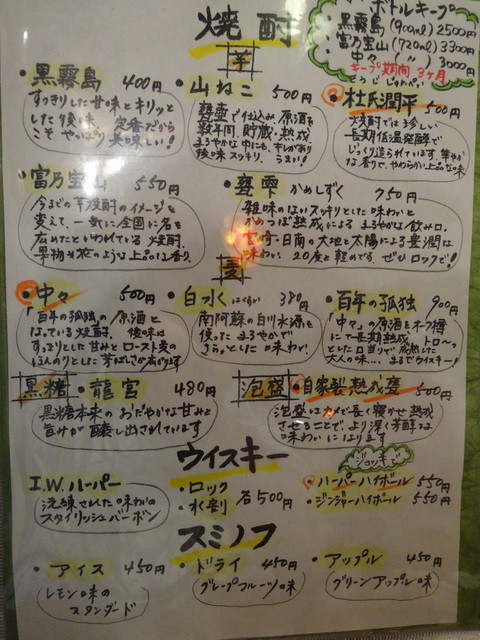 焼酎
ボトルキープ
・黒霧島(900ml)2500円
・富乃宝山(720ml)3300円
・中々 (〃)3000円
キープ期間 3ヶ月
芋
・黒霧島 400円
すっきりした甘味とキリッと
した後味。定番だから
こそ やっぱり 美味しい!
・山ねこ 500円
甕壷で仕込み、原酒を
数年間、貯蔵・熟成
まろやかな中にも、キレがあり
後味スッキリ。うまい!
・杜氏潤平 500円
焼酎では珍しい
長期低温発酵で
じっくり造られています。華やかな
香りで、やわらかい上品な味
・富乃宝山 550円
今までの芋焼酎のイメージを
変えて、一気に全国に名を
広めたといわれている 焼酎。
果物や花のような上品な香り。
・甕雫 かめしずく 750円
雑味のないスッキリとした味わいと
かめつぼ熟成による まろやかな飲み口。
宮崎・日南の大地と太陽による豊潤な
味わい。20度と軽めです。ぜひロックで!
麦
・中々 500円
「百年の孤独」の 原酒と
なっている焼酎。後味は
すっきりとした甘みとロースト麦の
ほんのりとした芳ばしさが広がります
・白水 はくすい 380円
南阿蘇の白川水源を
使った まろやかで
さらっとした 味わい。
・百年の孤独 900円
「中々」の原酒をオーク樽
にて長期熟成 トローッ
とした口当りで 成熟した
大人の味… まるでウイスキー!
黒糖
・龍宮 480円
黒糖本来の おだやかな甘みと
旨みが 醸し出されています
泡盛
・自家製熟成甕 500円
泡盛はカメで長く寝かせ 熟成
させることで、より深く芳醇な
味わいになります
ウイスキー
I.W.ハーパー
洗練された味わいの
スタイリッシュバーボン
・ロック
・水割 各500円
ジョッキで
・ハーパーハイボール 550円
・ジンジャーハイボール 550円
スミノフ
・アイス 450円
レモン味の
スタンダード
・ドライ 450円
グレープフルーツ味
・アップル 450円
グリーンアップル味